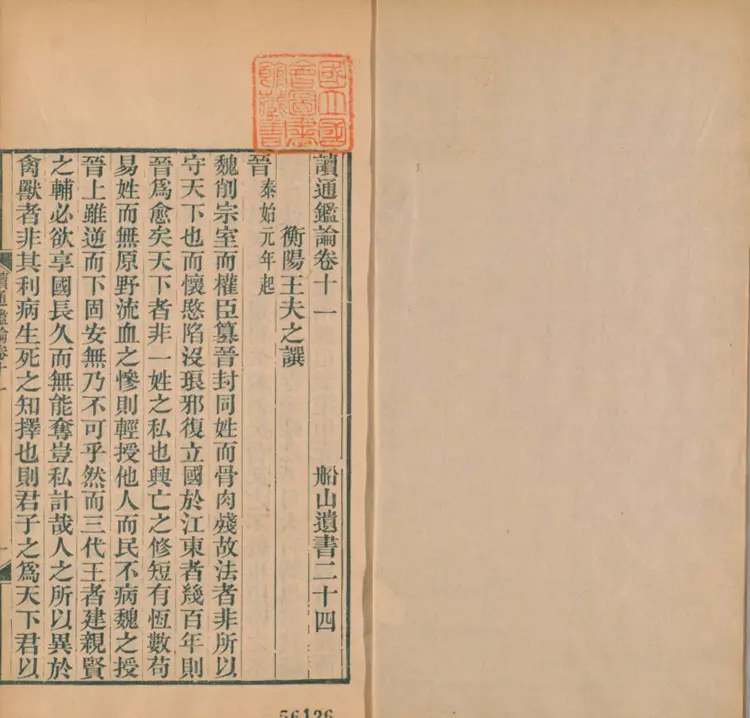 國立國
會圖書
館藏書
讀通鑑論卷十一 船山遺書二十四
衡陽王夫之譔
晉 泰始元年起
魏削宗室而權臣篡晉封同姓而骨肉殘故法者非所以
守天下也而懷愍陷沒琅邪復立國於江東者幾百年則
晉爲愈矣天下者非一姓之私也興亡之修短有恆數苟
易姓而無原野流血之慘則輕授他人而民不病魏之授
晉上雖逆而下固安無乃不可乎然而三代王者建親賢
之輔必欲享國長久而無能奪豈私計哉人之所以異於
禽獸者非其利病生死之知擇也則君子之爲天下君以
讀通鑑論卷十一 一
56126